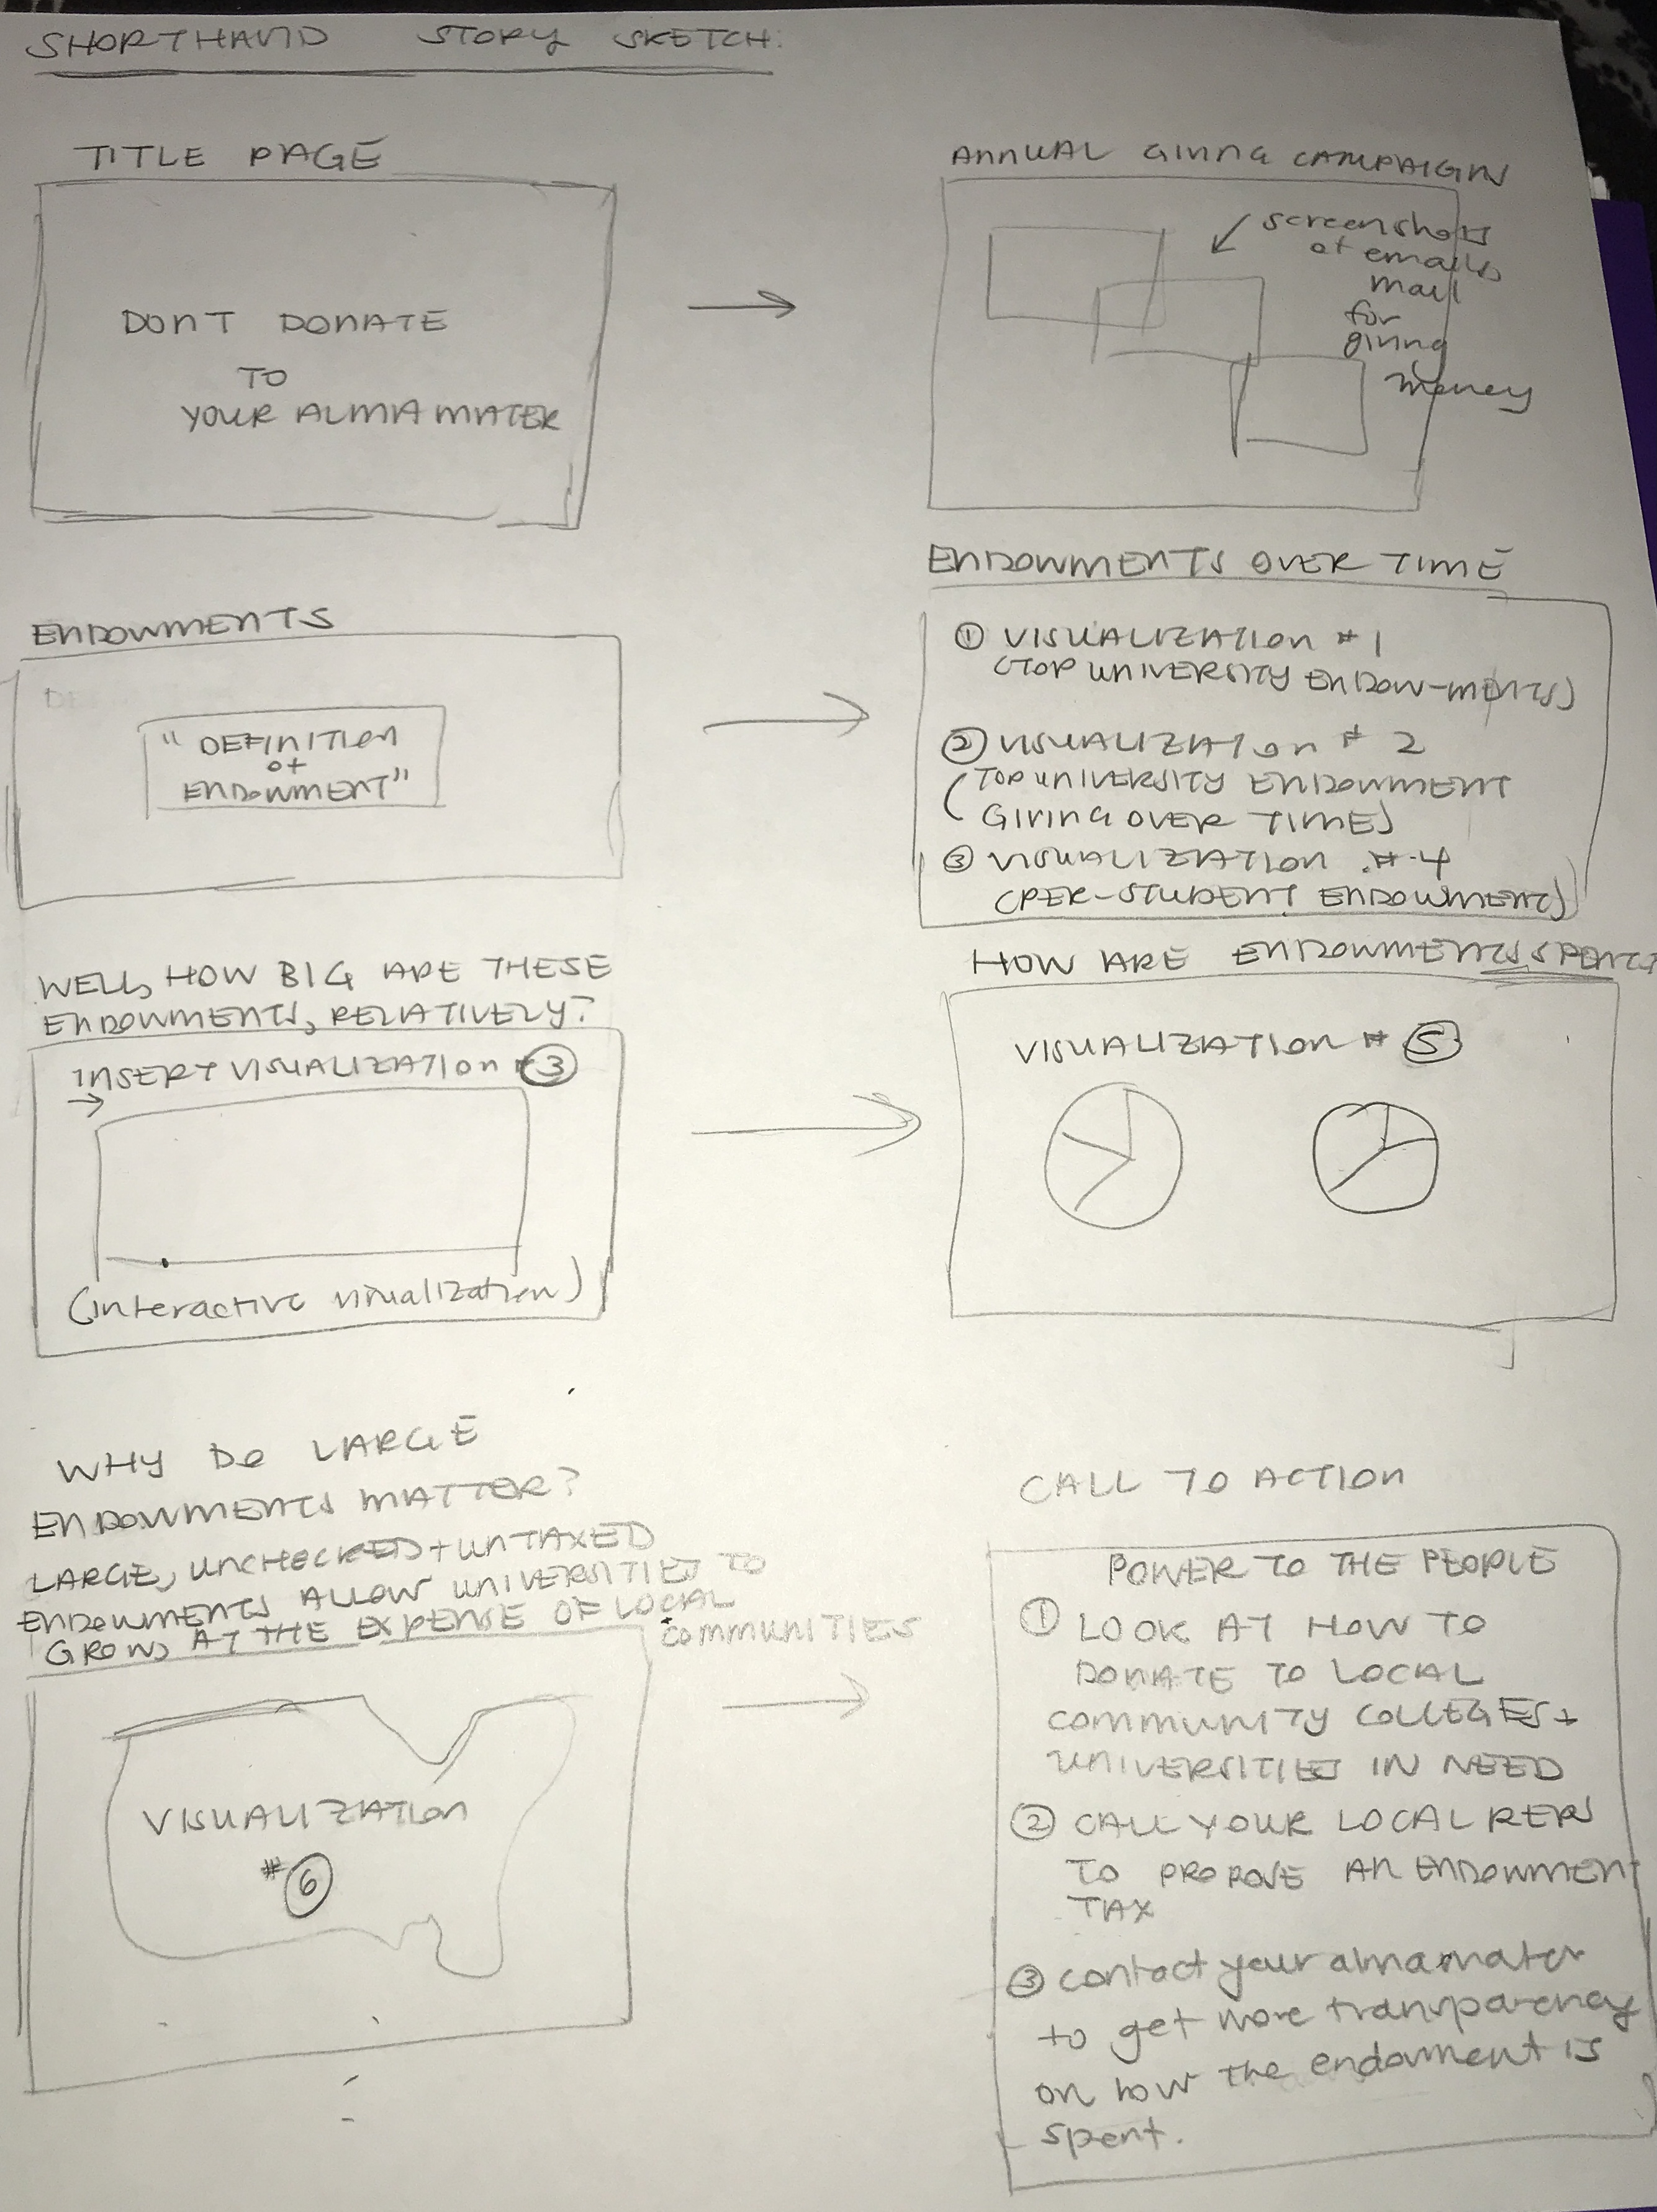 SHORTHAND STORY SKETCH:
TITLE PAGE
DONT DONATE
TO
YOUR ALMA MATER
ANNUAL GIVING CAMPAIGN
screenshots
of emails,
mail
for
giving
money
ENDOWMENTS
"DEFINITION
of
ENDOWMENT"
ENDOWMENTS OVER TIME
① VISUALIZATION #1
(TOP UNIVERSITY ENDOW-MENTS)
② VISUALIZATION # 2
(TOP UNIVERSITY ENDOWMENT
GIVING OVER TIME)
③ VISUALIZATION #4
(PER-STUDENT ENDOWMENT)
WELL, HOW BIG ARE THESE
ENDOWMENTS, RELATIVELY?
INSERT VISUALIZATION #③
→
(interactive visualization)
HOW ARE ENDOWMENTS SPENT?
VISUALIZATION # ⑤
WHY DO LARGE
ENDOWMENTS MATTER?
LARGE, UNCHECKED + UNTAXED
ENDOWMENTS ALLOW UNIVERSITIES TO
GROW, AT THE EXPENSE OF LOCAL
COMMUNITIES
VISUALIZATION
#⑥
CALL TO ACTION
POWER TO THE PEOPLE
① LOOK AT HOW TO
DONATE TO LOCAL
COMMUNITY COLLEGES +
UNIVERSITIES IN NEED
② CALL YOUR LOCAL REPS
TO PROPOSE AN ENDOWMENT
TAX
③ contact your alma mater
to get more transparency
on how the endowment is
spent.